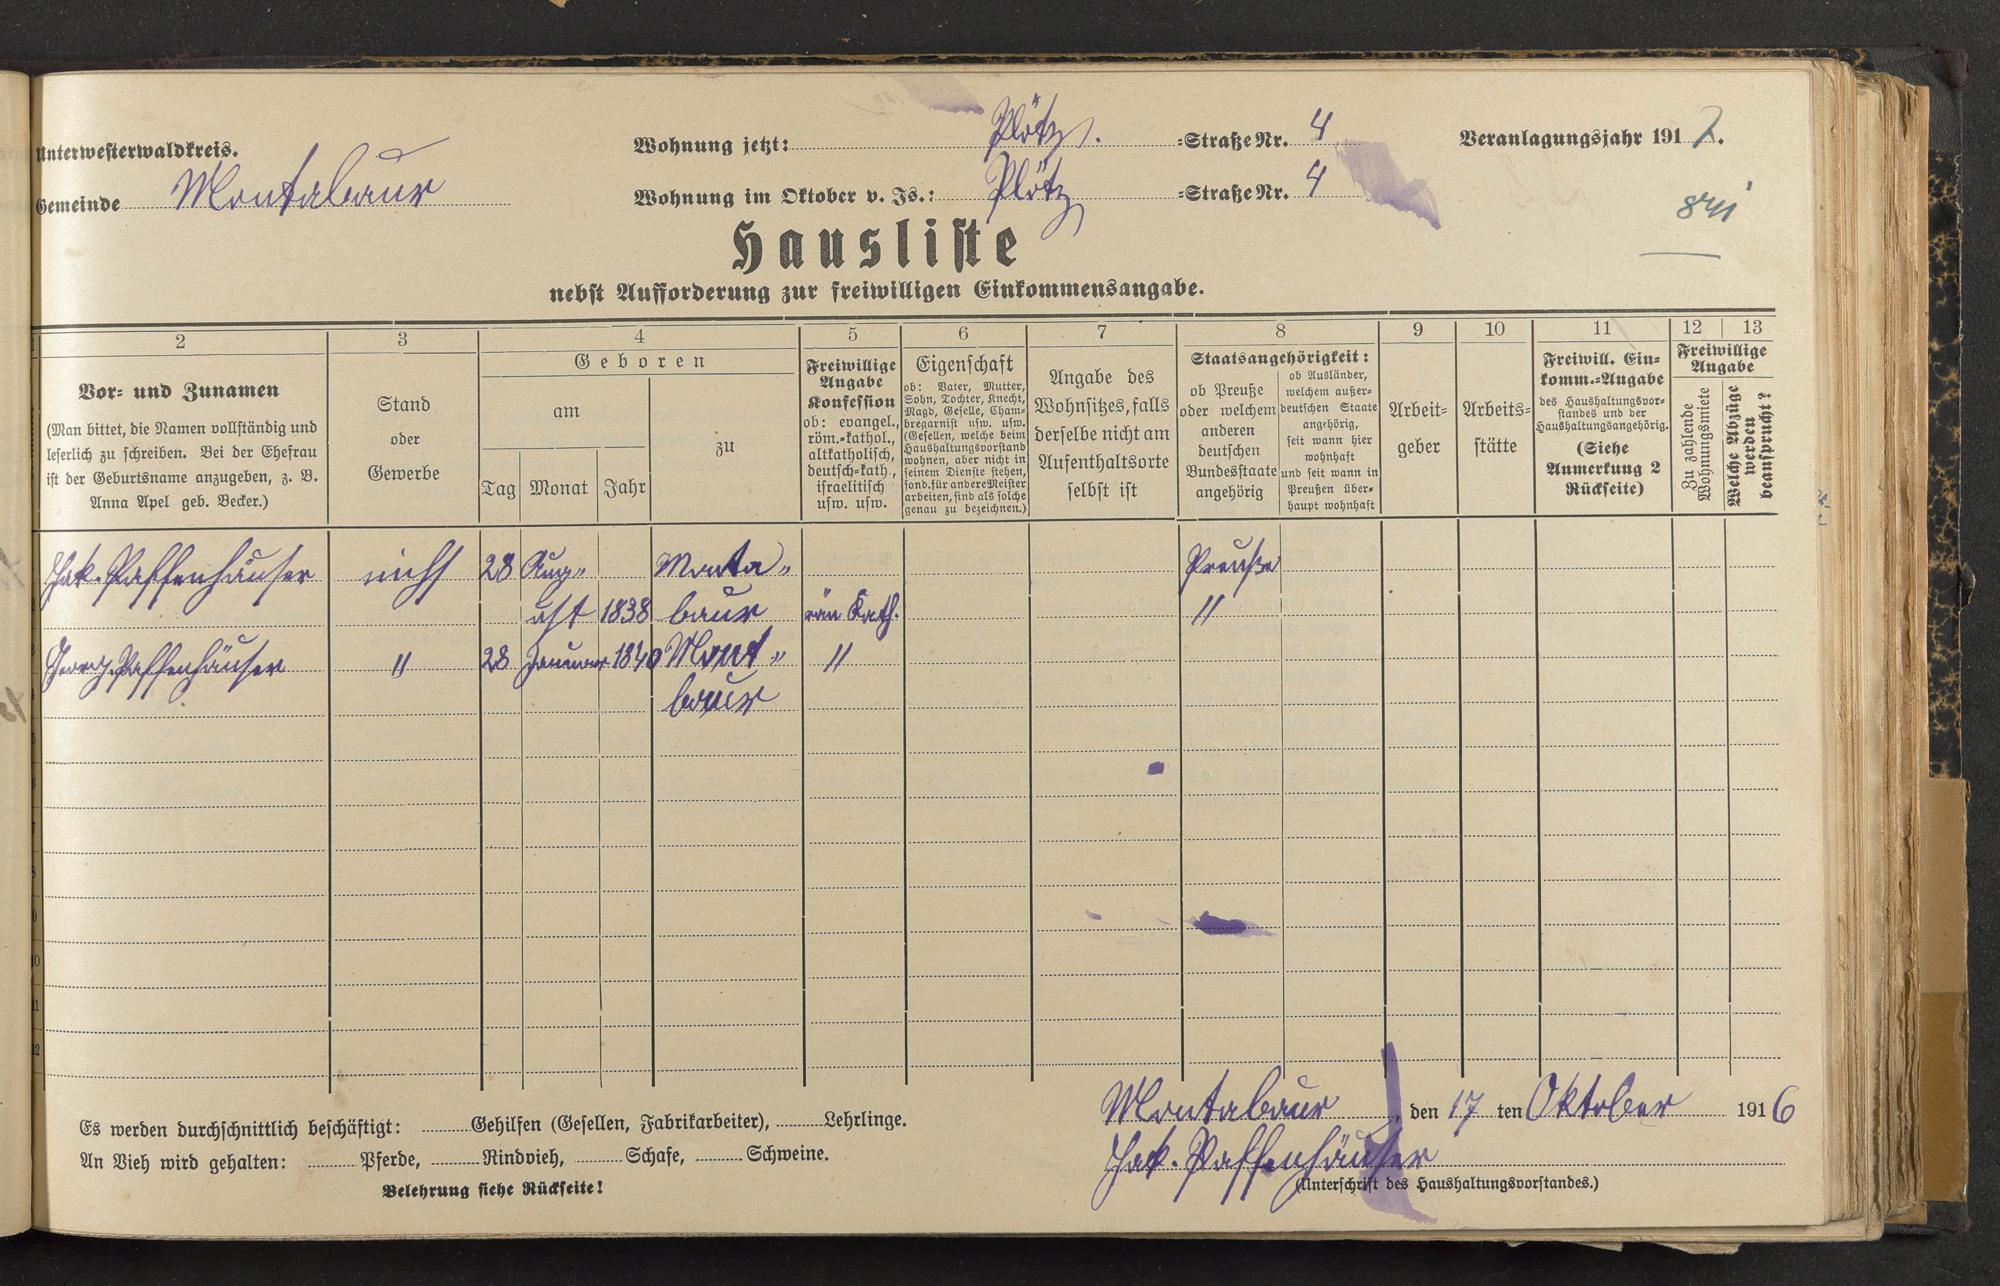 Unterwesterwaldkreis.
Wohnung jetzt: Plötz. =Straße Nr. 4
Veranlagungsjahr 1917.
Gemeinde Montabaur
Wohnung im Oktober v. Js.: Plötz =Straße Nr. 4
Hausliste
nebst Aufforderung zur freiwilligen Einkommensangabe.
2
3
4
5
6
7
8
9
10
11
12
13
Vor- und Zunamen
(Man bittet, die Namen vollständig und
leserlich zu schreiben. Bei der Ehefrau
ist der Geburtsname anzugeben, z. B.
Anna Apel geb. Becker.)
Stand
oder
Gewerbe
Geboren
am
Tag
Monat
Jahr
zu
Freiwillige
Angabe
Konfession
ob: evangel.,
röm.-kathol.,
altkatholisch,
deutsch-kath.,
israelitisch
usw. usw.
Eigenschaft
ob: Vater, Mutter,
Sohn, Tochter, Knecht,
Magd, Geselle, Cham-
bregarnist usw. usw.
(Gesellen, welche beim
Haushaltungsvorstand
wohnen, aber nicht in
seinem Dienste stehen,
sond. für andere Meister
arbeiten, sind als solche
genau zu bezeichnen.)
Angabe des
Wohnsitzes, falls
derselbe nicht am
Aufenthaltsorte
selbst ist
Staatsangehörigkeit:
ob Preuße
oder welchem
anderen
deutschen
Bundesstaate
angehörig
ob Ausländer,
welchem außer-
deutschen Staate
angehörig,
seit wann hier
wohnhaft
und seit wann in
Preußen über-
haupt wohnhaft
Arbeit-
geber
Arbeits-
stätte
Freiwill. Ein-
komm.-Angabe
des Haushaltungsvor-
standes und der
Haushaltungsangehörig.
(Siehe
Anmerkung 2
Rückseite)
Freiwillige
Angabe
Zu zahlende
Wohnungsmiete
Welche Abzüge
werden
beansprucht?
Jak. Paffenhäuser nichts 28 Aug„ Monta„ Preuße
ust 1838 baur röm Kath. "
Georg. Paffenhäuser " 28 Januar 1840 Mont„ "
baur
5
6
7
8
9
10
11
12
Es werden durchschnittlich beschäftigt: Gehilfen (Gesellen, Fabrikarbeiter), Lehrlinge.
An Vieh wird gehalten: Pferde, Rindvieh, Schafe, Schweine.
Belehrung siehe Rückseite!
Montabaur, den 17 ten Oktober 1916
Jak. Paffenhäuser
(Unterschrift des Haushaltungsvorstandes.)